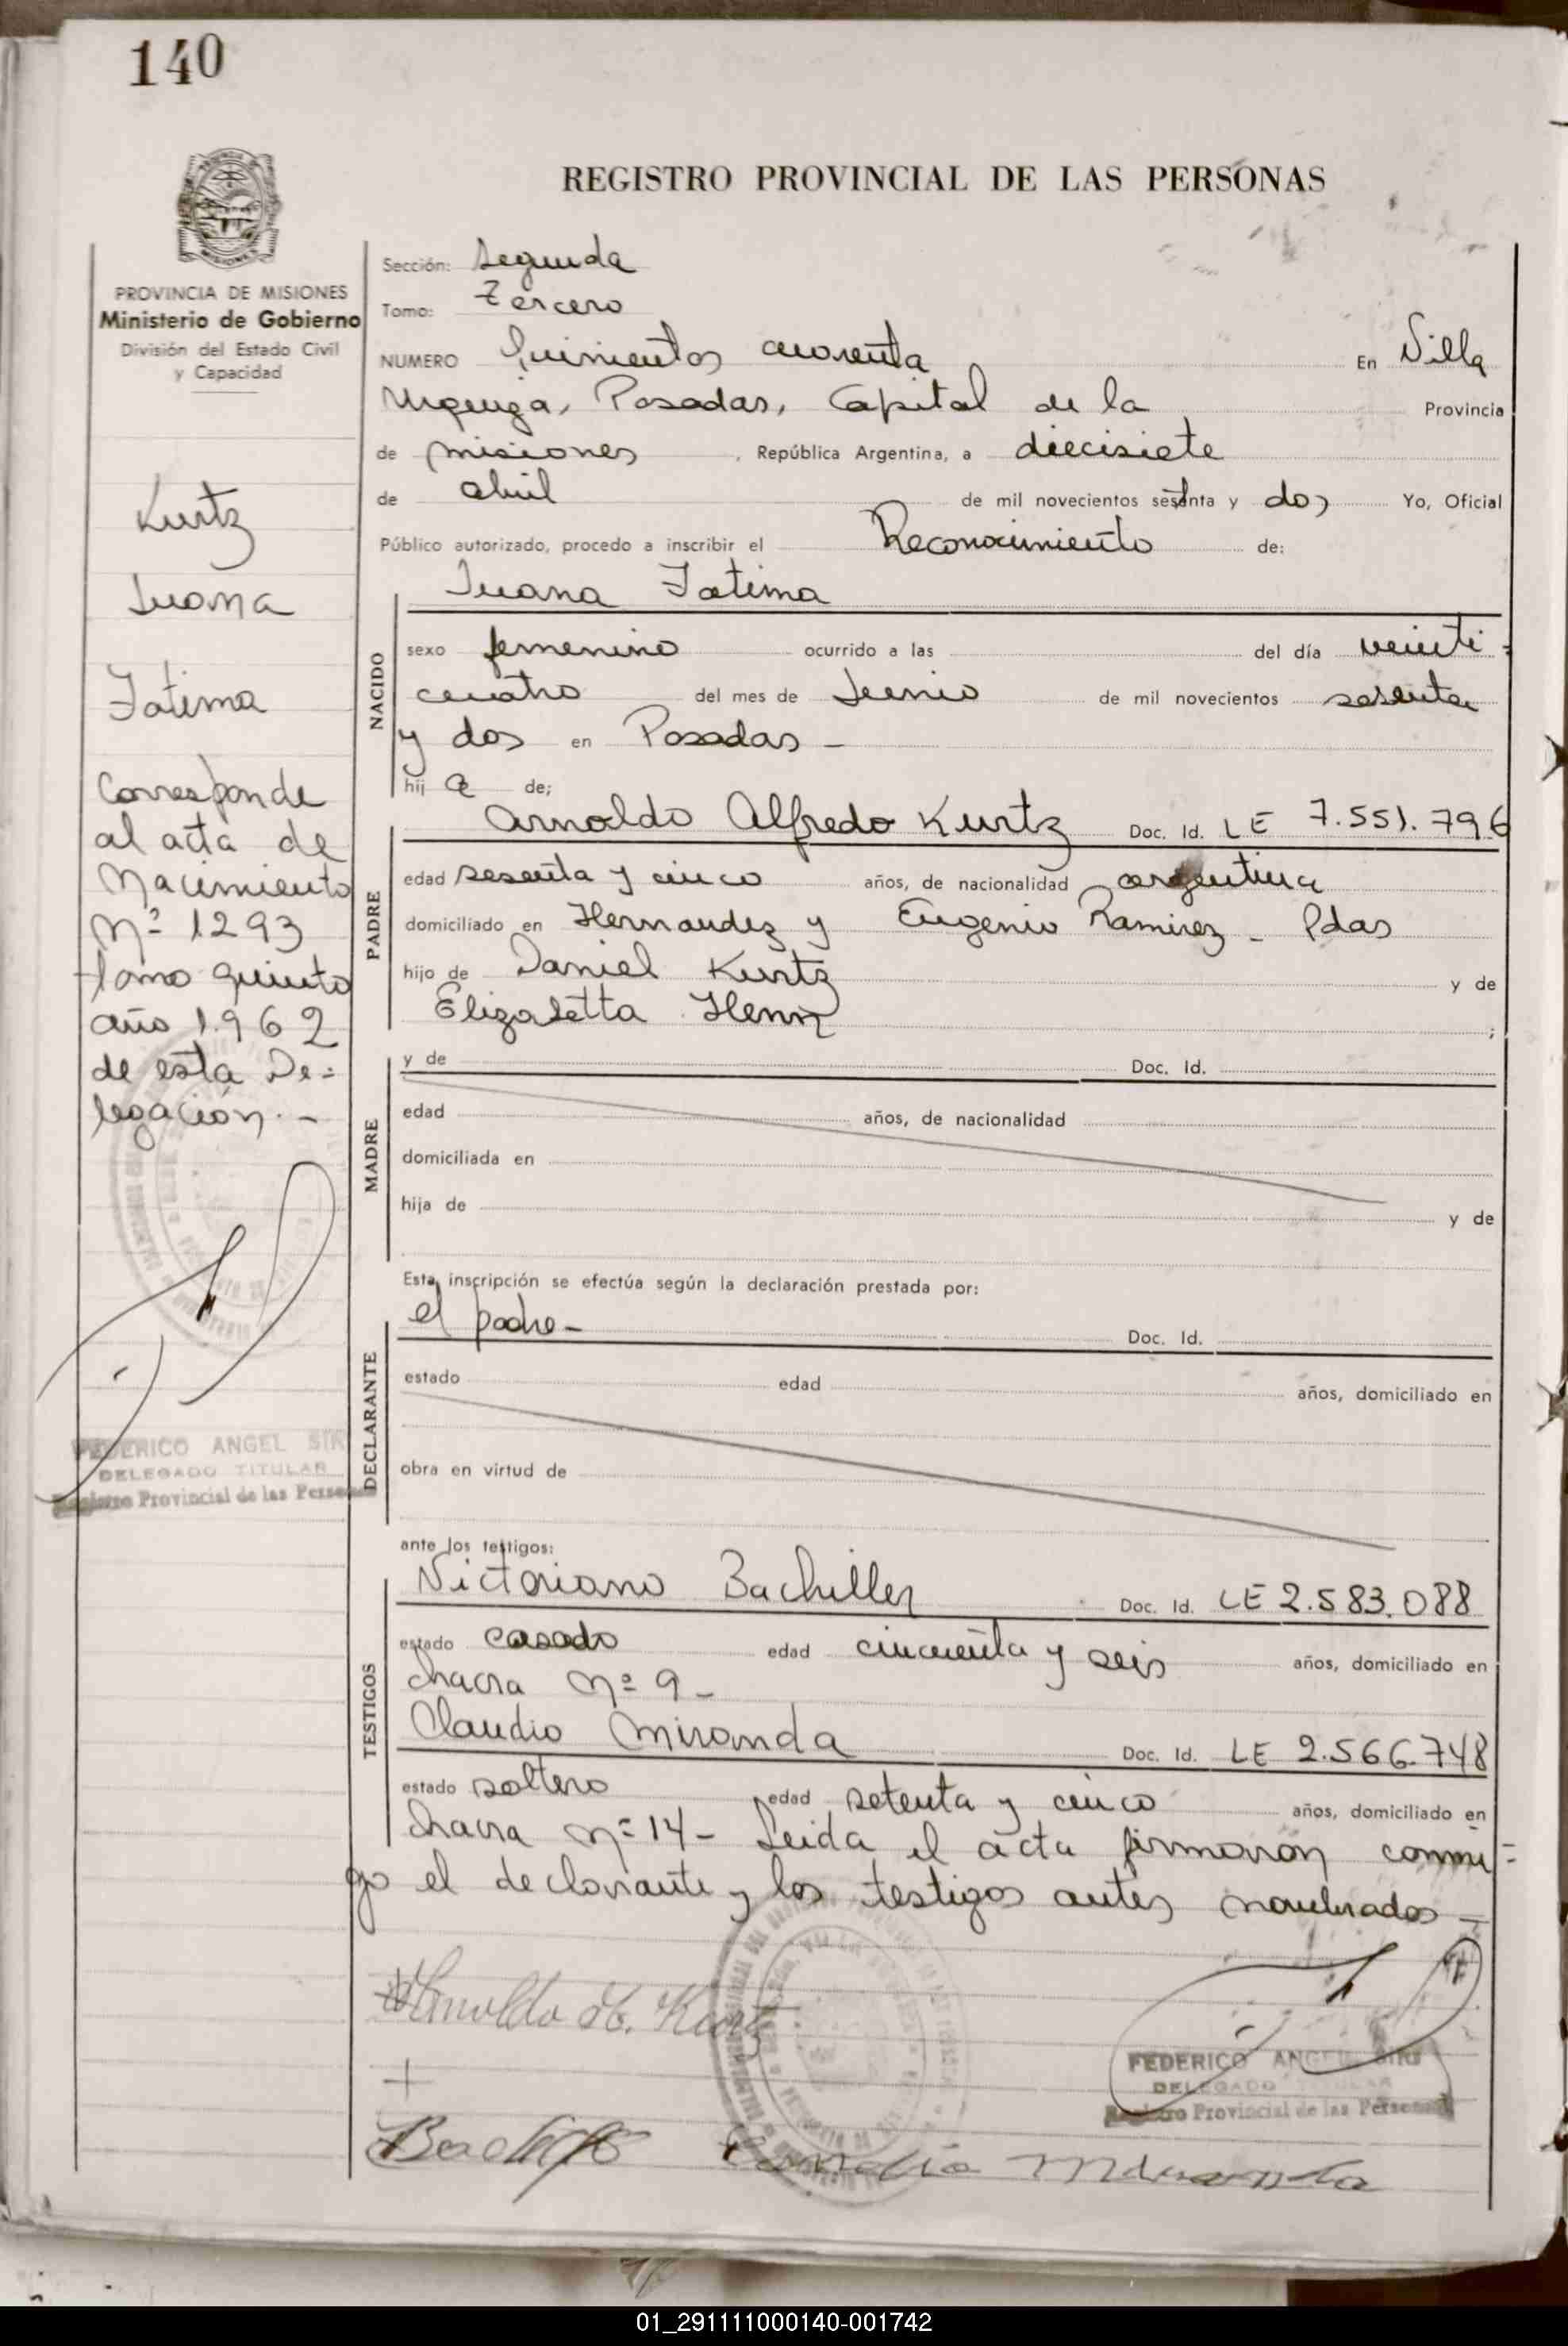 140
REGISTRO PROVINCIAL DE LAS PERSONAS
PROVINCIA DE MISIONES
Ministerio de Gobierno
División del Estado Civil
y Capacidad
Kurtz
Juana
Fatima
Corresponde
al acta de
Nacimiento
Nº 1293
tomo quinto
año 1962
de esta De=
legación.-
FEDERICO ANGEL SIRI
DELEGADO TITULAR
Registro Provincial de las Personas
Sección: Segunda
Tomo: Tercero
NUMERO Quinientos cuarenta En Villa
Urquiza, Posadas, Capital de la Provincia
de misiones, República Argentina, a diecisiete
de abril de mil novecientos sesenta y dos Yo, Oficial
Público autorizado, procedo a inscribir el Reconocimiento de:
NACIDO
Juana Fatima
sexo femenino ocurrido a las del día veinti=
cuatro del mes de Junio de mil novecientos sesenta
y dos en Posadas -
hij a de;
PADRE
Arnoldo Alfredo Kurtz Doc. Id. LE 7.551.796
edad sesenta y cinco años, de nacionalidad argentina
domiciliado en Hernandez y Eugenio Ramirez - Pdas
hijo de Daniel Kurtz y de
Elizabetta Henn ;
MADRE
y de Doc. Id.
edad años, de nacionalidad
domiciliada en
hija de y de
Esta inscripción se efectúa según la declaración prestada por:
DECLARANTE
el padre - Doc. Id.
estado edad años, domiciliado en
obra en virtud de
ante los testigos:
TESTIGOS
Victoriano Bachiller Doc. Id. LE 2.583.088
estado casado edad cincuenta y seis años, domiciliado en
chacra nº 9 -
Claudio Miranda Doc. Id. LE 2.566.748
estado soltero edad setenta y cinco años, domiciliado en
chacra nº 14 - Leida el acta firmaron conmi=
go el declarante y los testigos antes nombrados -
Arnoldo A. Kurtz
FEDERICO ANGEL SIRI
DELEGADO TITULAR
Registro Provincial de las Personas
Miranda
01_291111000140-001742